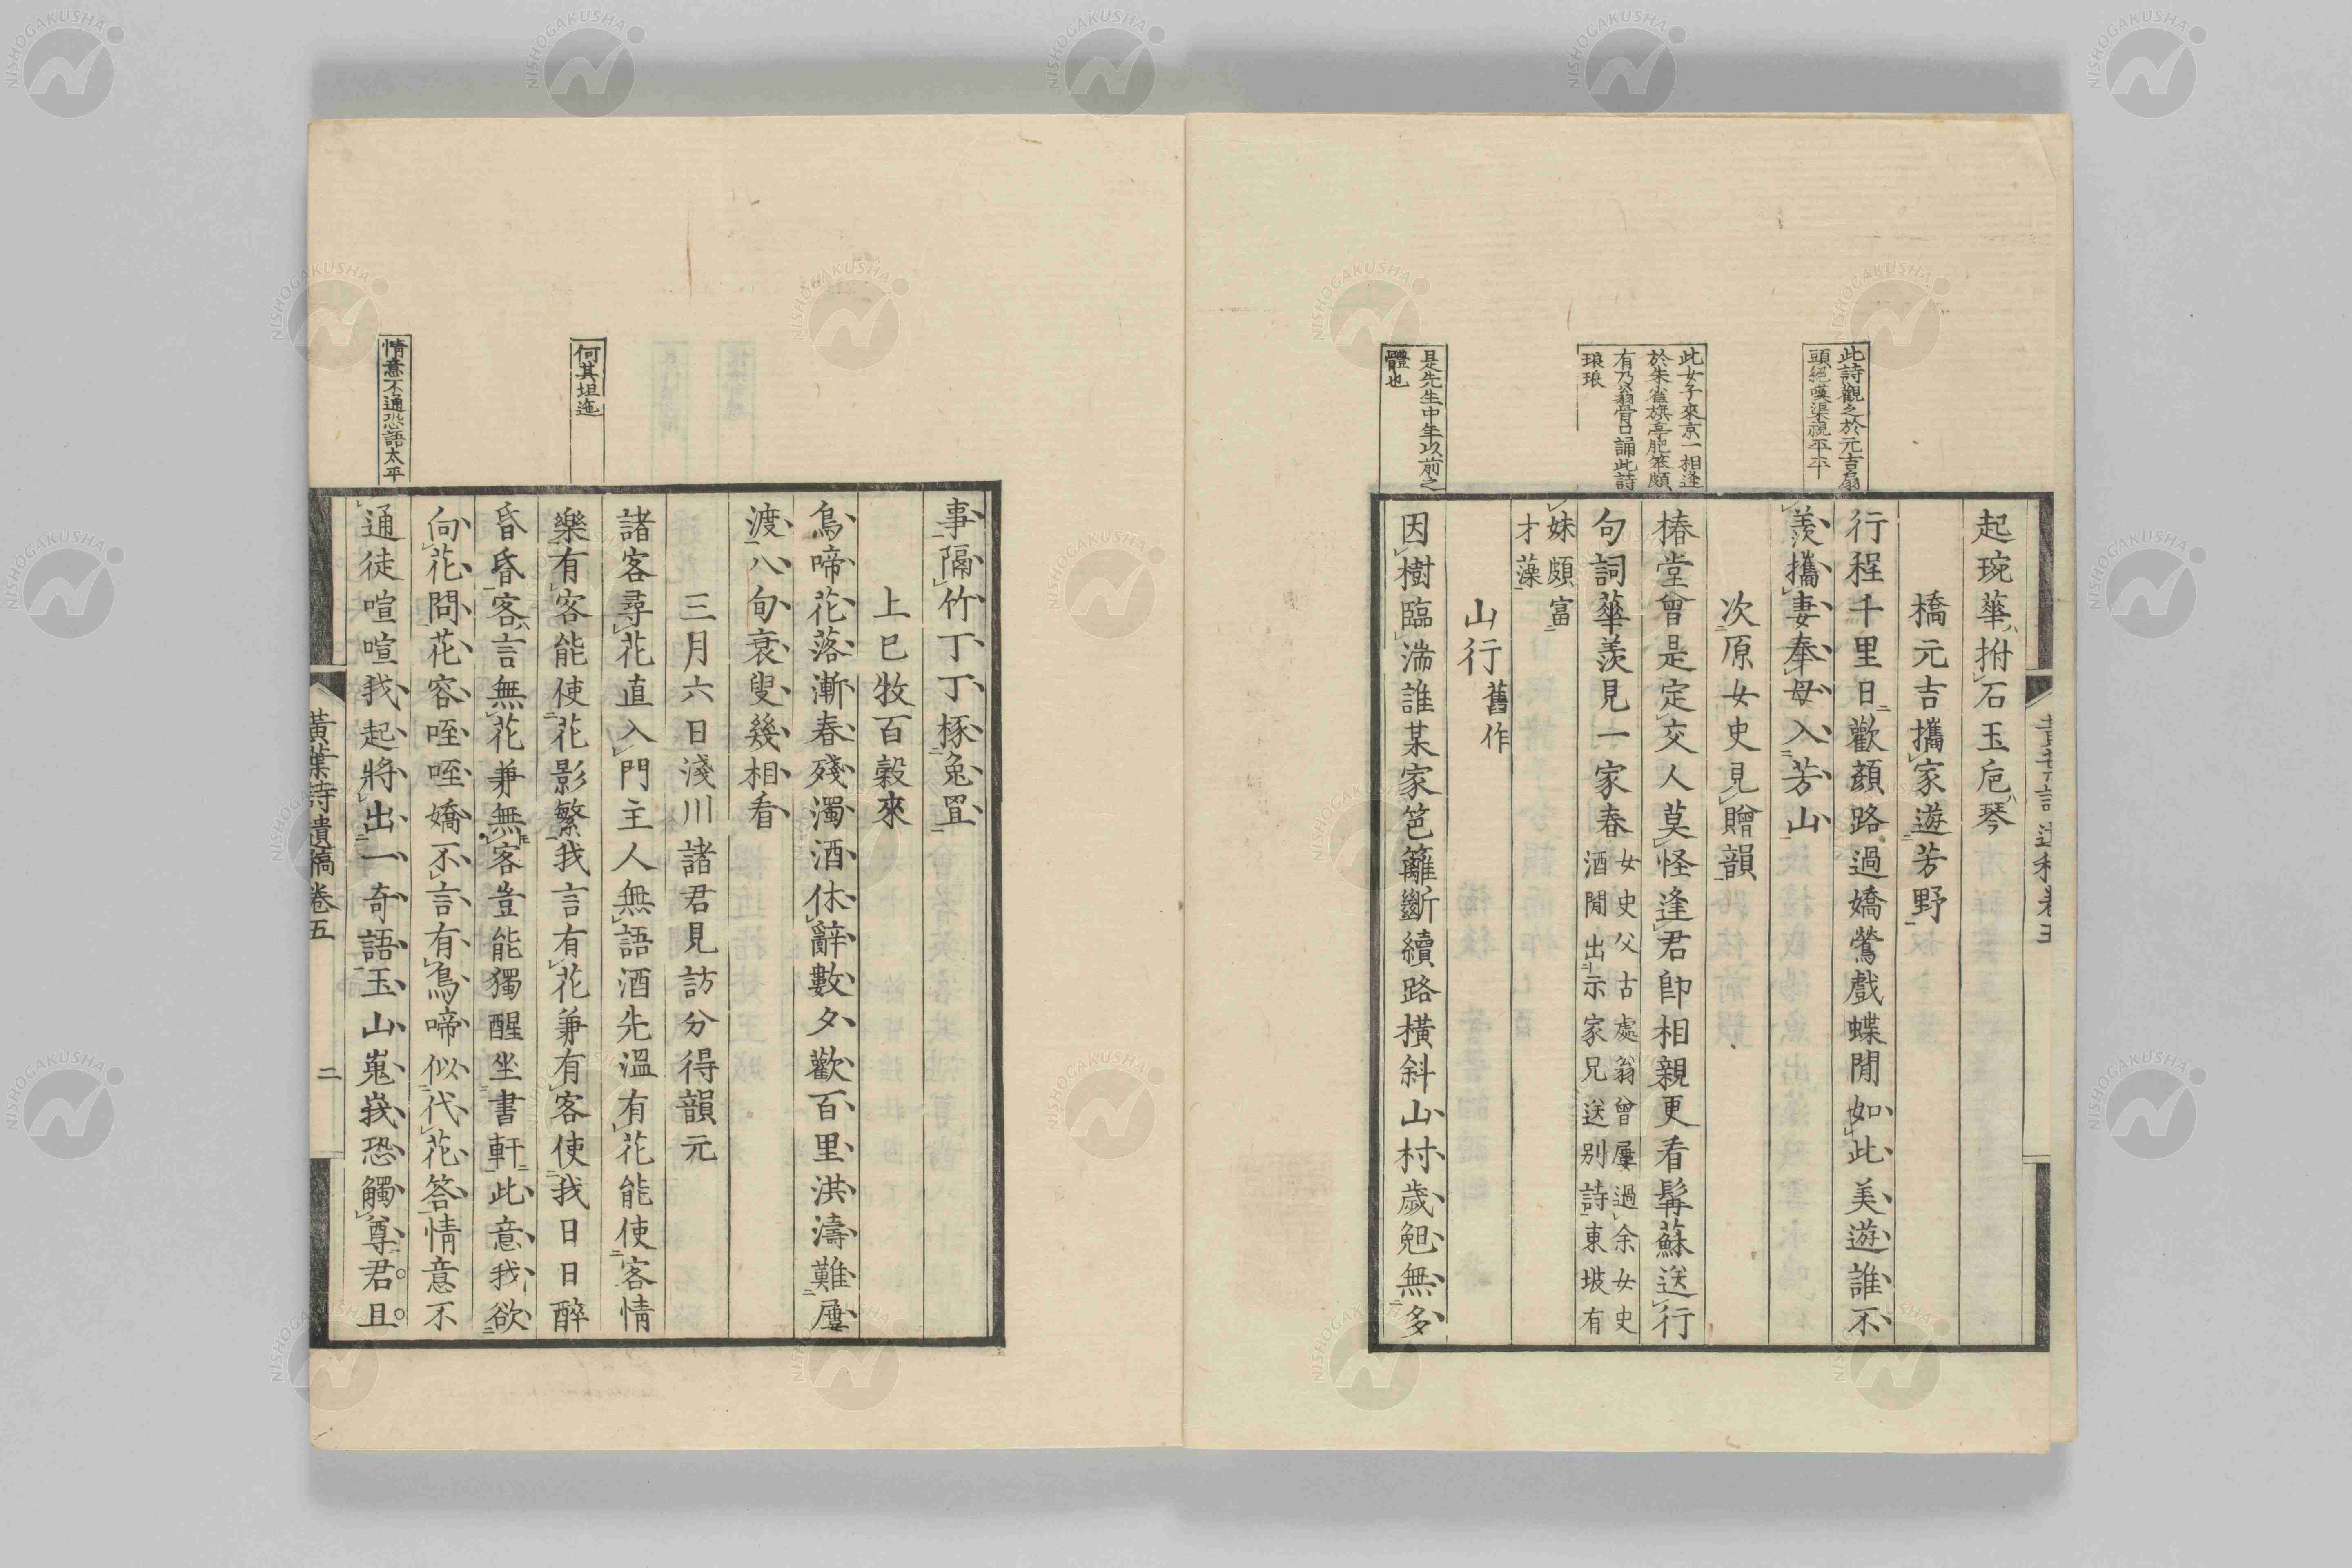 此詩觀之於元吉扇
頭絕嘆渠視平平
此女子來京一相逢
於朱雀旗亭肥笨頗
有乃翁骨口誦此詩
琅琅
是先生中年以前之
體也
起琬華拊石玉卮琴
橋元吉攜家遊芳野
行程千里日歡顏路過嬌鶯戲蝶閒如此美遊誰不
羨攜妻奉母入芳山
次原女史見贈韻
椿堂曾是定交人莫怪逢君卽相親更看髯蘇送行
句詞華羨見一家春
女史父古處翁曾屢過余女史
酒閒出示家兄送別詩東坡有
妹頗富
才藻
山行舊作
因樹臨湍誰某家笆籬斷續路橫斜山村歲勉無多
黃葉詩遺稿卷五
何其坦迤
情意不通恐語太平
事隔竹丁丁椓兔罝
上巳牧百穀來
鳥啼花落漸春殘濁酒休辭數夕歡百里洪濤難屢
渡八旬衰叟幾相看
三月六日淺川諸君見訪分得韻元
諸客尋花直入門主人無語酒先溫有花能使客情
樂有客能使花影繁我言有花兼有客使我日日醉
昏昏客言無花兼無客豈能獨醒坐書軒此意我欲
向花問花容咥咥嬌不言有鳥啼似代花答情意不
通徒喧喧我起將出一奇語玉山嵬峩恐觸尊君且
黃葉詩遺稿卷五
二
NISHOGAKUSHA